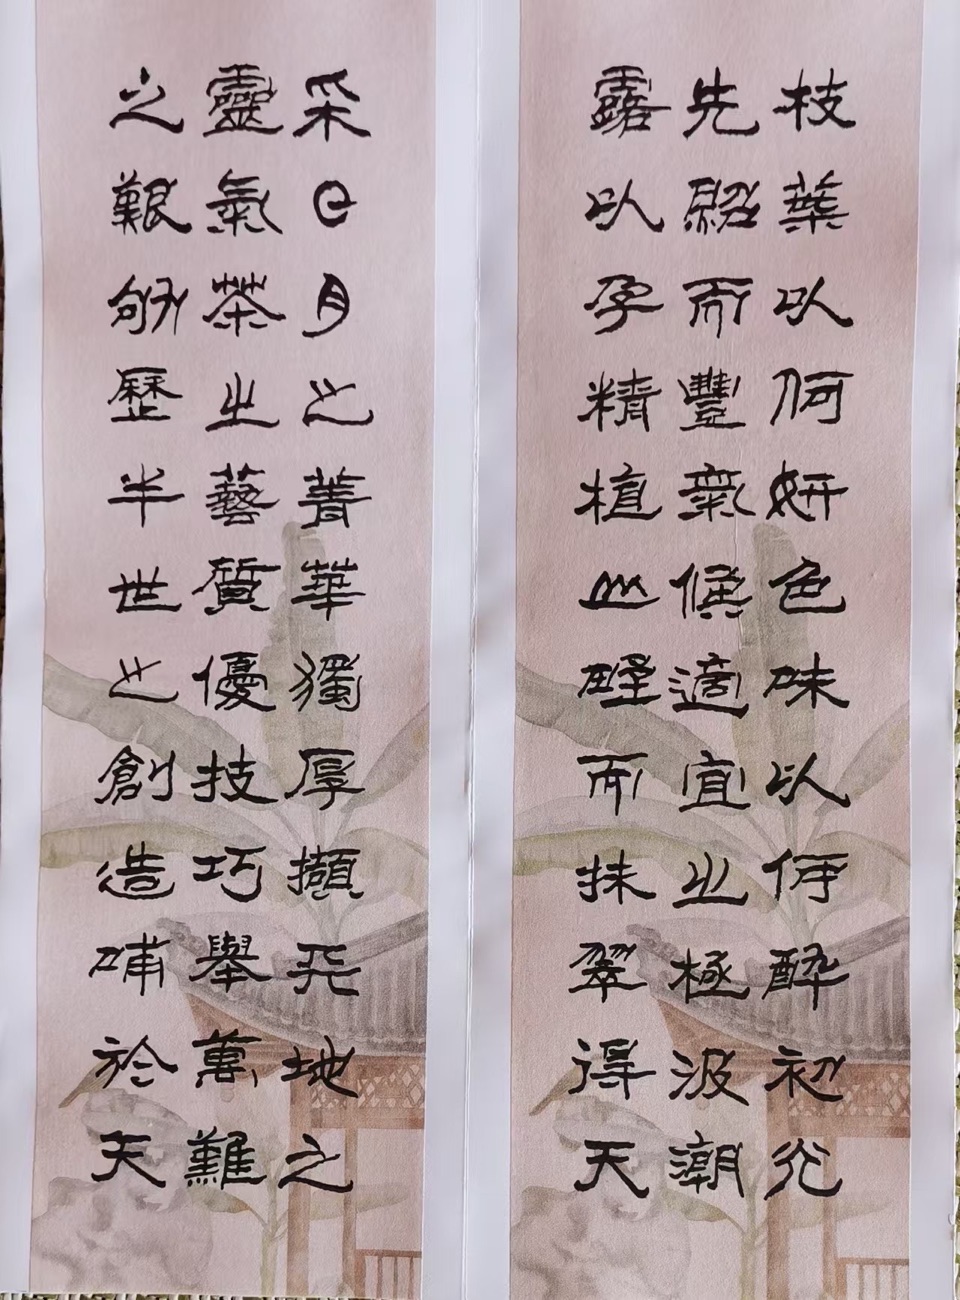 枝葉以何妍色味以何醉初光
先照而豐氣候適宜之極汲潮
露以孕精植山野而抹翠得天
采日月之菁華獨厚擷天地之
靈氣茶之藝質優技巧舉萬難
之艱躬歷半世之創造哺於天